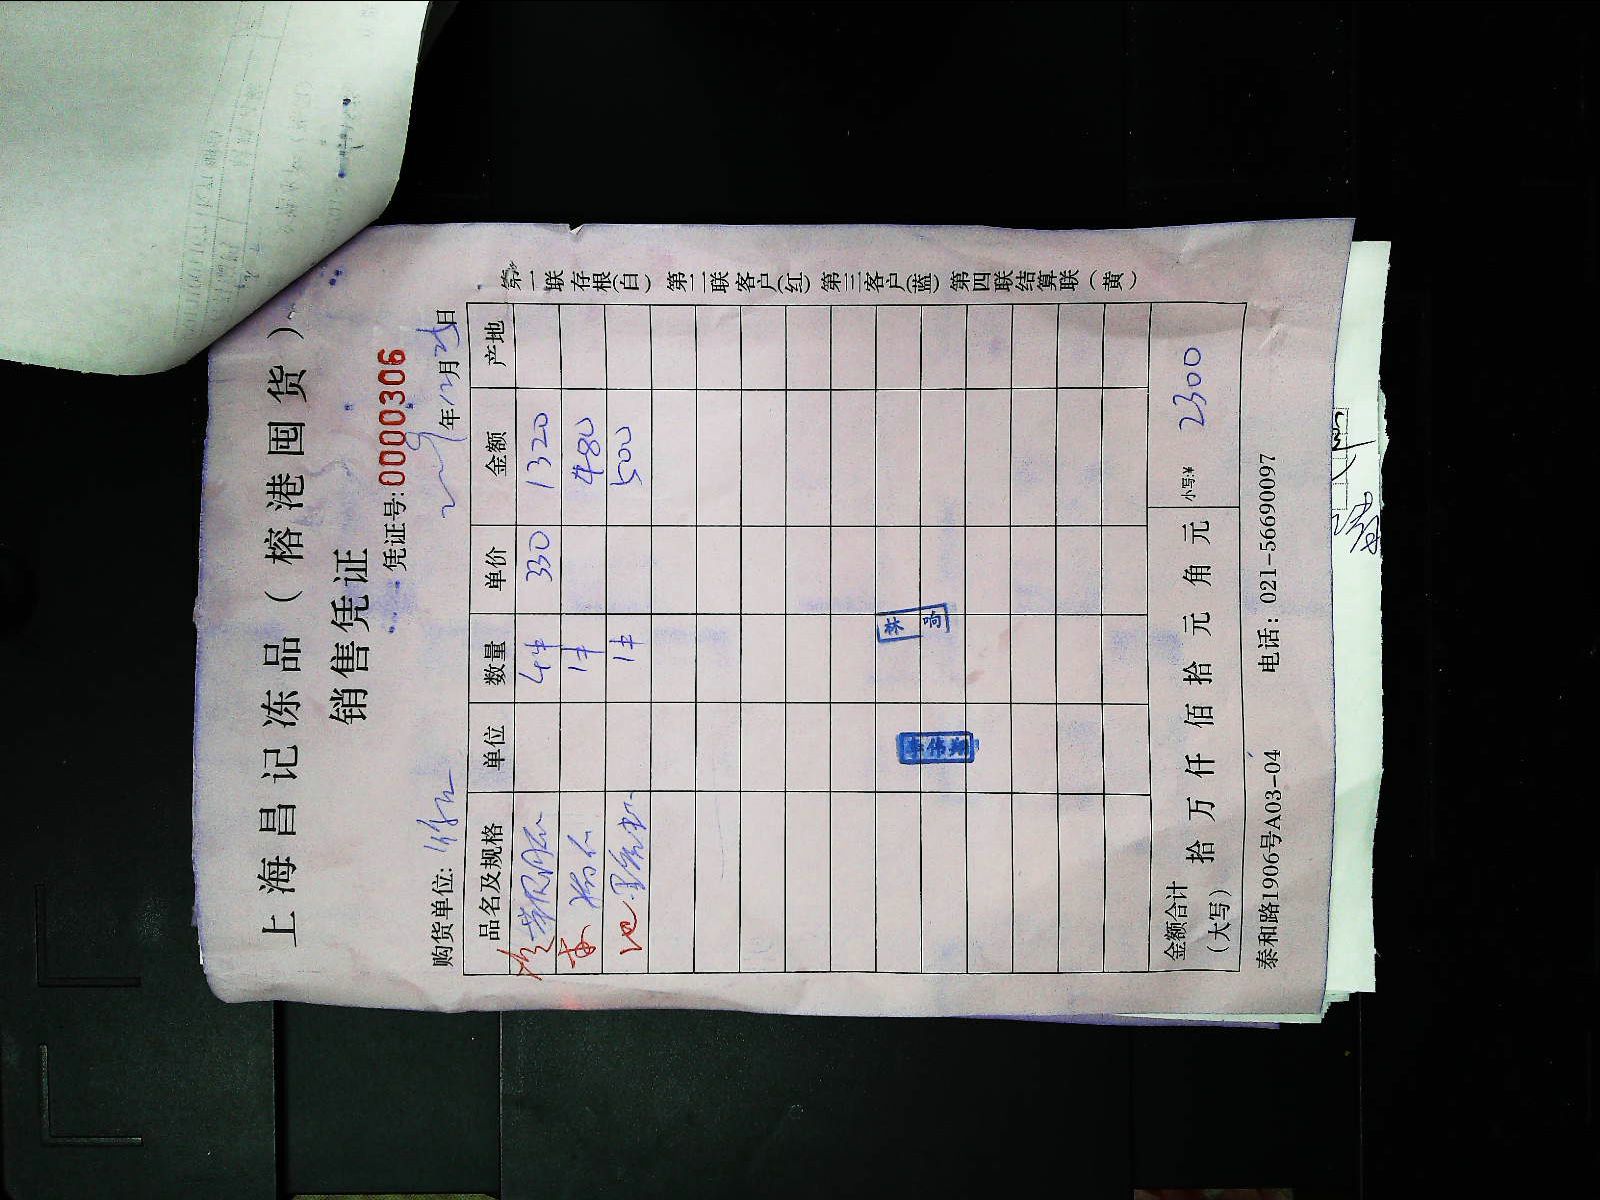 上海昌记冻品（榕港囤货）
销售凭证
凭证号: 0000306
购货单位:
年12月25日
品名及规格 单位 数量 单价 金额 产地
4件 330 1320
1件 480
1件 500
金额合计（大写） 拾 万 仟 佰 拾 元 角 元 小写:¥ 2300
泰和路1906号A03-04 电话: 021-56690097
第一联存根(白) 第二联客户(红) 第三客户(蓝) 第四联结算联(黄)